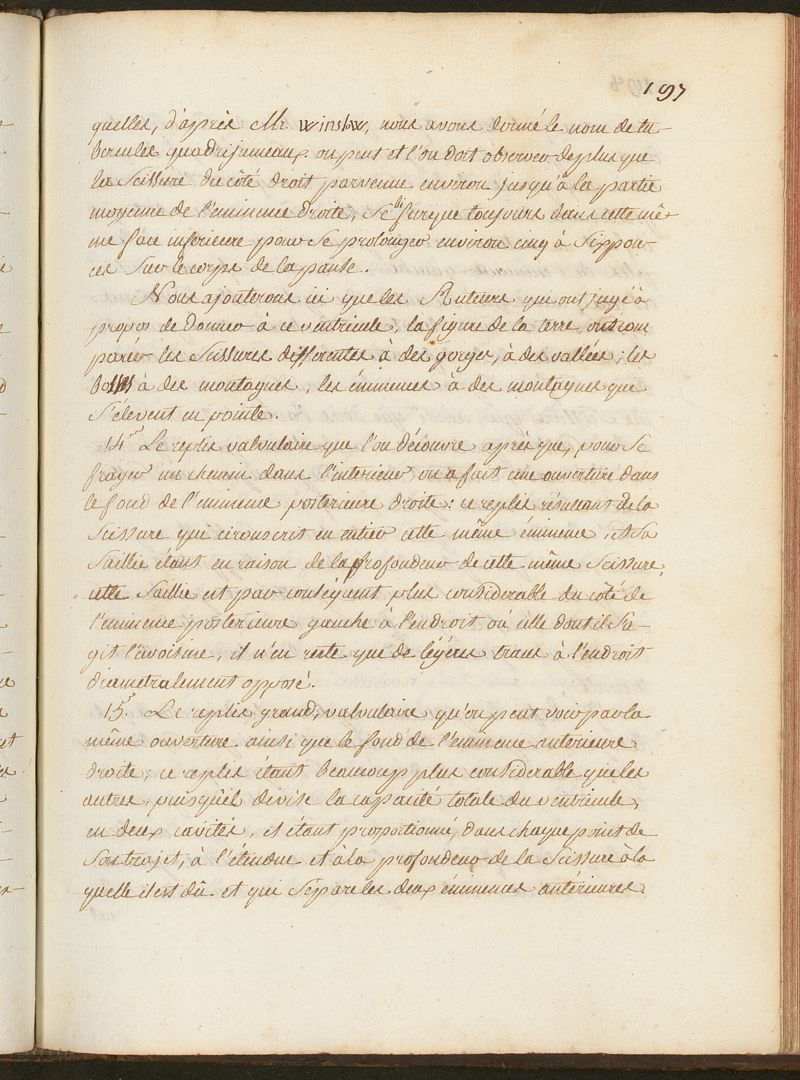 197
quelles, d'après Mr. Winslow, nous avons donné le nom de tu-
bercules quadrijumeaux. on peut et l'on doit observer de plus que
la Scissure du côté droit parvenue environ jusqu'à la partie
moyenne de l'eminence droite, se bifurque toujours dans cette mê-
me face inferieure pour se prolonger environ cinq à six pou-
ces sur le corps de la panse.
Nous ajouterons ici que les Auteurs qui ont jugé à
propos de donner à ce ventricule, la figure de la terre, ont com
paré les scissures differentes à des gorges, à des vallées; les
à des montagnes, les éminences à des montagnes qui
s'élevent en pointe.
14.° Le replis valvulaire que l'on découvre après que, pour se
frayer un chemin dans l'interieur, on a fait une ouverture dans
le fond de l'eminence posterieure droite: ce replis résultant de la
Scissure qui circonscrit en entier cette même éminence, et sa
Saillie étant en raison de la profondeur de cette même Scissure,
cette Saillie est par conséquent plus considerable du côté de
l'eminence posterieure gauche à l'endroit où elle dont il s'a-
git l'avoisine, il n'en reste que de légéres traces à l'endroit
diametralement opposé.
15.° Le replis grand, valvulaire qu'on peut voir par la
même ouverture. ainsi que le fond de l'eminence anterieure
droite; ce replis étant beaucoup plus considerable que les
autres, puisqu'il divise la capacité totale du ventricule,
en deux cavités, et étant proportionné, dans chaque point de
son trajet, à l'étendue et à la profondeur de la Scissure à la
quelle il est dû. et qui sépare les deux éminences antérieures.